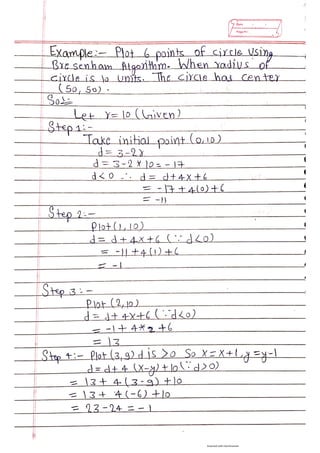 Example:- Plot 6 points of circle using
Bresenham Algorithm. When radius of
circle is 10 units. The circle has center
(50, 50).
Sol:-
Let r = 10 (Given)
Step 1:-
Take initial point (0,10)
d = 3-2r
d = 3-2 × 10 = -17
d<0 ∴ d = d+4x+6
= -17+4(0)+6
= -11
Step 2:-
Plot (1,10)
d = d+4x+6 (∵ d<0)
= -11+4(1)+6
= -1
Step 3:-
Plot (2,10)
d = d+4x+6 (∵ d<0)
= -1+4*2+6
= 13
Step 4:- Plot (3,9) d is >0 So X=X+1, y=y-1
d = d+4(X-y)+10 (∵ d>0)
= 13+4(3-9)+10
= 13+4(-6)+10
= 23-24 = -1